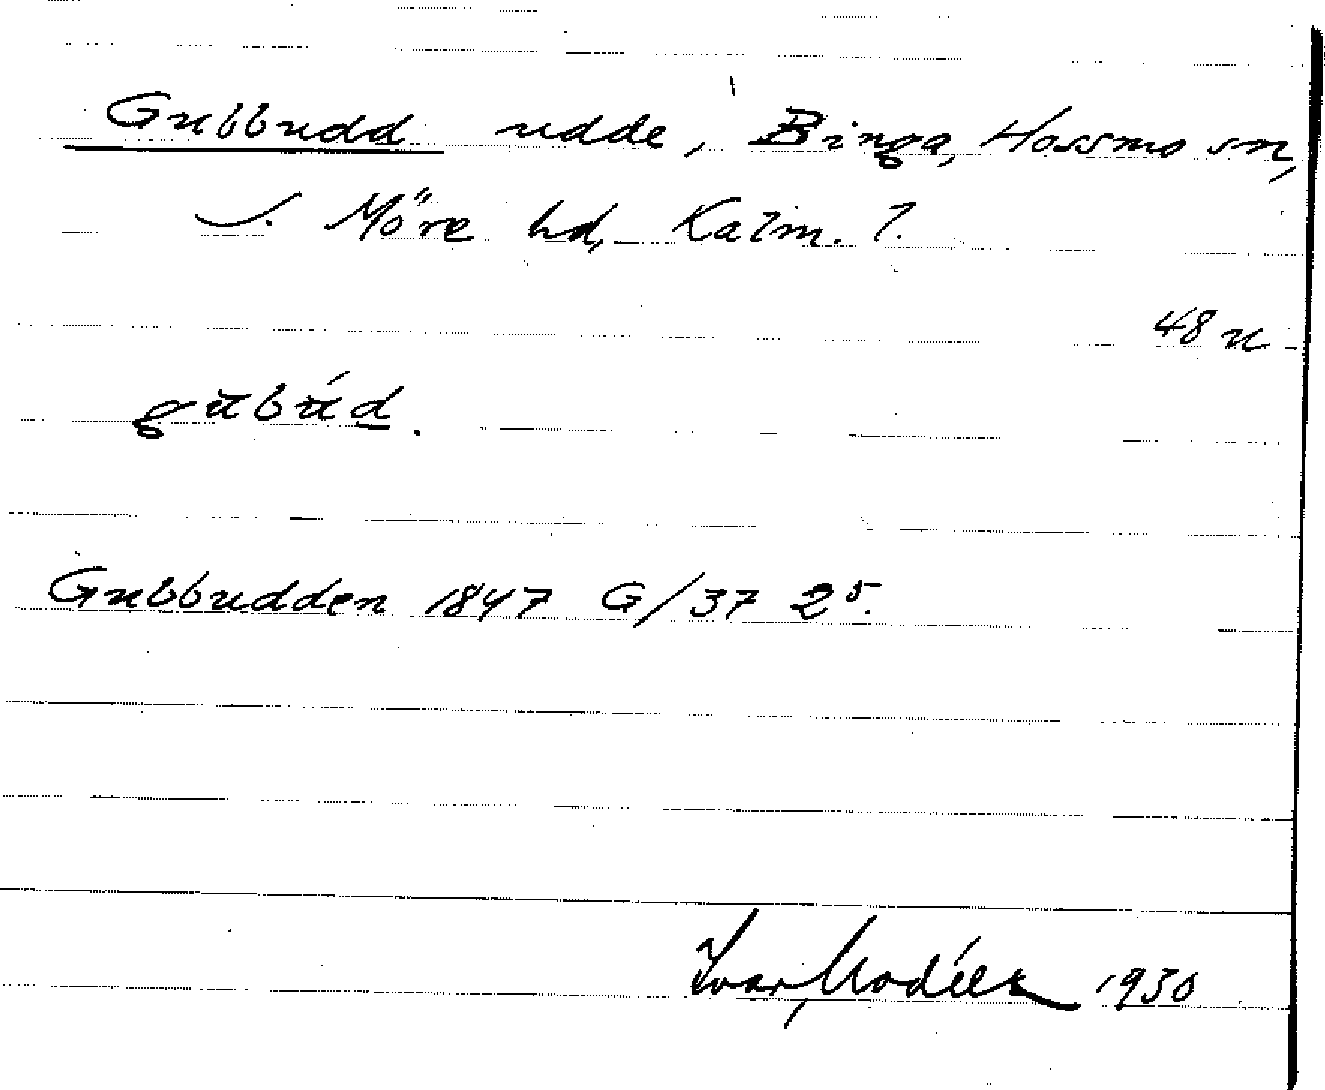 Gubbudd udde, Binga, Hossmo sn,
S. Möre hd, Kalm. l.
48 u
gubúd.
Gubbudden 1847 G/37 25.
Ivar Modéer 1930